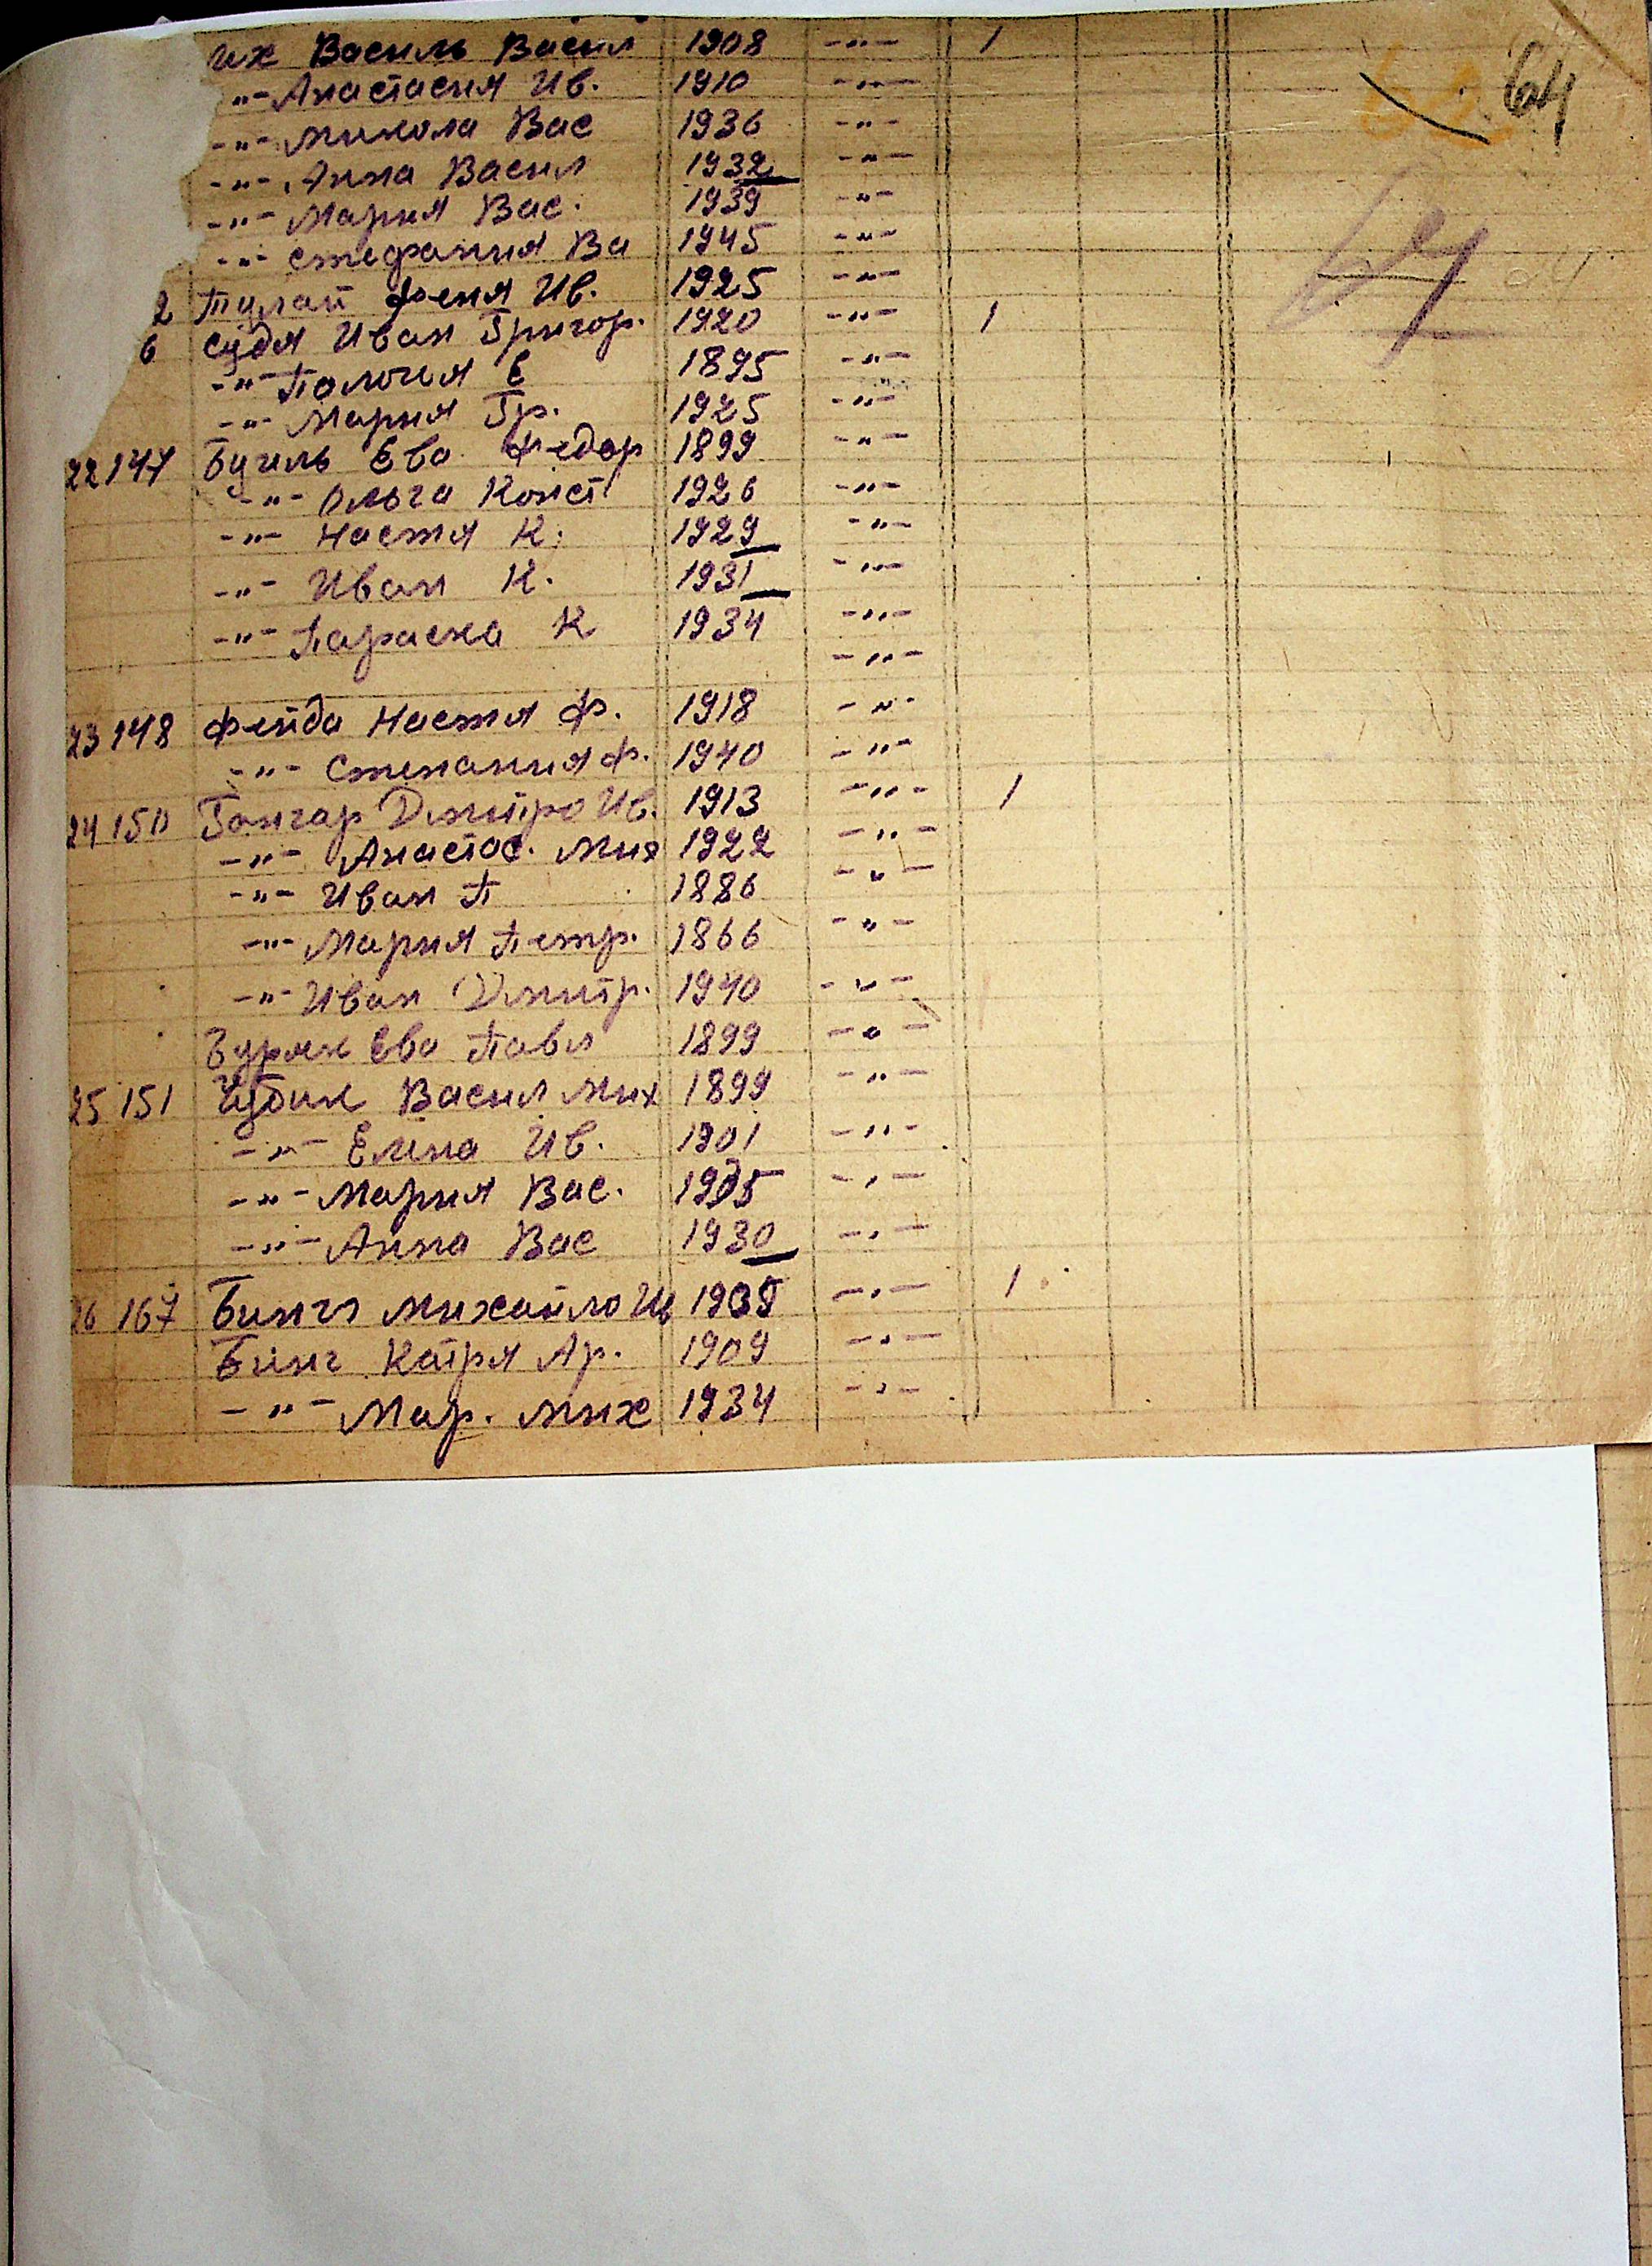 их Василь Васил 1908 -"- 1
-"- Анастасия Ив. 1910 -"-
64
-"- Микола Вас 1936 -"-
-"- Анна Васил 1932 -"-
-"- Мария Вас. 1939 -"-
-"- Стефания Ва 1945 -"-
2 Пулай Феня Ив. 1925 -"-
6 Судя Иван Григор. 1920 -"- 1
-"- Палогия Е 1895 -"-
-"- Мария Гр. 1925 -"-
22 147 Бугиль Ева Федор 1899 -"-
-"- Ольга Конст 1926 -"-
-"- Настя К. 1929 -"-
-"- Иван К. 1931 -"-
-"- Параска К 1934 -"-
-"-
23 148 Фейда Настя Ф. 1918 -"-
-"- Степания Ф. 1940 -"-
24 150 Гончар Дмитро Ив. 1913 -"- 1
-"- Анастас. Мих 1922 -"-
-"- Иван П 1886 -"-
-"- Мария Петр. 1866 -"-
-"- Иван Дмитр. 1940 -"-
Ева Павл 1899 -"-
25 151 Васил Мих 1899 -"-
-"- Елена Ив. 1901 -"-
-"- Мария Вас. -"-
-"- Анна Вас 1930 -"-
26 167 Михайло -"- 1
Бинг Катря Ар. 1909 -"-
-"- Мар. Мих 1934 -"-